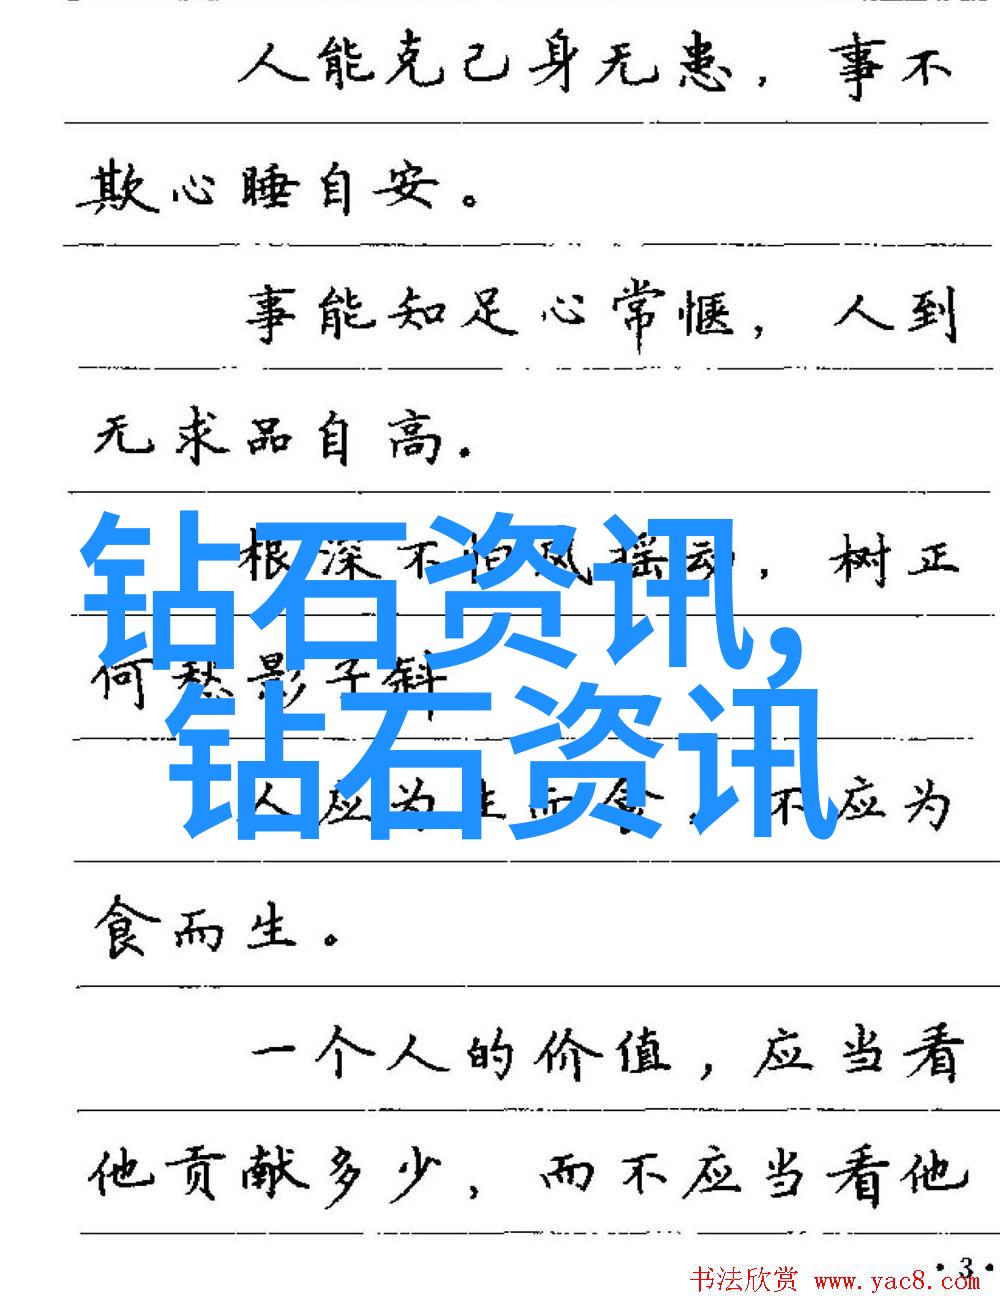 人能克己身无患，事不
欺心睡自安。
事能知足心常惬，人到
无求品自高.
根深不怕风摇动，树正
何愁影子斜
钻石资讯,
钻石资讯
人应为生而食，不应为
食而生。
一个人的价值，应当看
他贡献多少，而不应当看他
·3·
书法欣赏 www.yac8.com